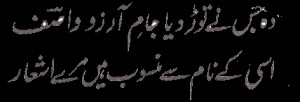 وہ جس نے توڑ دیا جامِ آرزو واصفؔ
اسی کے نام سے منسوب ہیں مرے اشعار